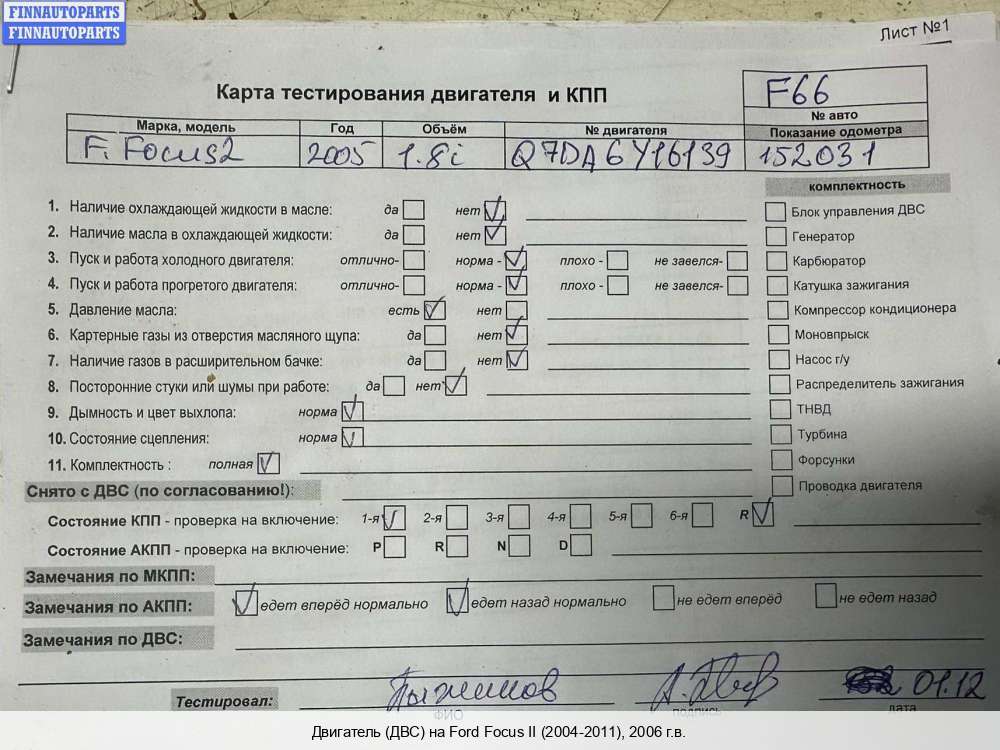 FINNAUTOPARTS
FINNAUTOPARTS
Лист №1
Карта тестирования двигателя и КПП
F66
№ авто
Марка, модель Год Объём № двигателя Показание одометра
F. Focus2 2005 1.8i Q7DA 6Y16139 152031
комплектность
1. Наличие охлаждающей жидкости в масле: да нет Блок управления ДВС
2. Наличие масла в охлаждающей жидкости: да нет Генератор
3. Пуск и работа холодного двигателя: отлично- норма - плохо - не завелся- Карбюратор
4. Пуск и работа прогретого двигателя: отлично- норма - плохо - не завелся- Катушка зажигания
5. Давление масла: есть нет Компрессор кондиционера
6. Картерные газы из отверстия масляного щупа: да нет Моновпрыск
7. Наличие газов в расширительном бачке: да нет Насос г/у
8. Посторонние стуки или шумы при работе: да нет Распределитель зажигания
9. Дымность и цвет выхлопа: норма ТНВД
10. Состояние сцепления: норма Турбина
11. Комплектность : полная Форсунки
Снято с ДВС (по согласованию!): Проводка двигателя
Состояние КПП - проверка на включение: 1-я 2-я 3-я 4-я 5-я 6-я R
Состояние АКПП - проверка на включение: P R N D
Замечания по МКПП:
Замечания по АКПП: едет вперёд нормально едет назад нормально не едет вперёд не едет назад
Замечания по ДВС:
Тестировал: 01.12
ФИО подпись дата
Двигатель (ДВС) на Ford Focus II (2004-2011), 2006 г.в.